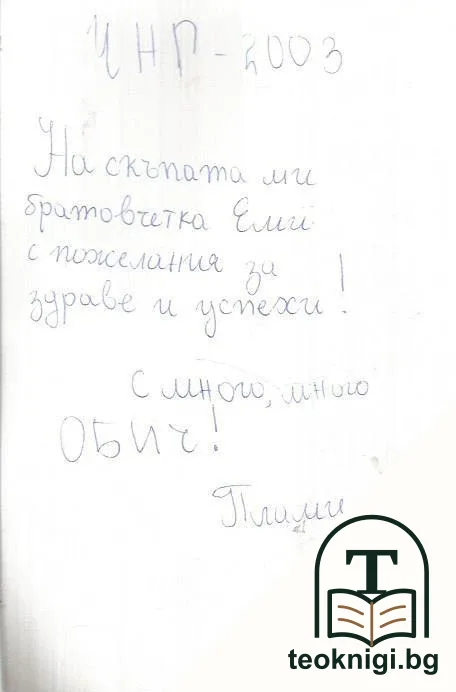 ЧНГ - 2003
На скъпата ми
братовчетка Еми
с пожелания за
здраве и успехи!
с много, много
ОБИЧ!
Плами
T
teoknigi.bg